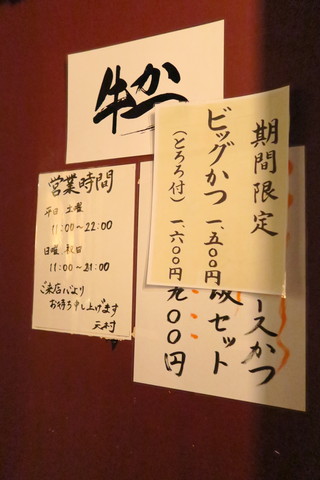 牛かつ
期間限定
ビッグかつ 一、五〇〇円
(とろろ付) 一、六〇〇円
営業時間
平日 土曜
11:00～22:00
日曜、祝日
11:00～21:00
ご来店心より
お待ち申し上げます
天村
ースかつ
セット
九〇〇円